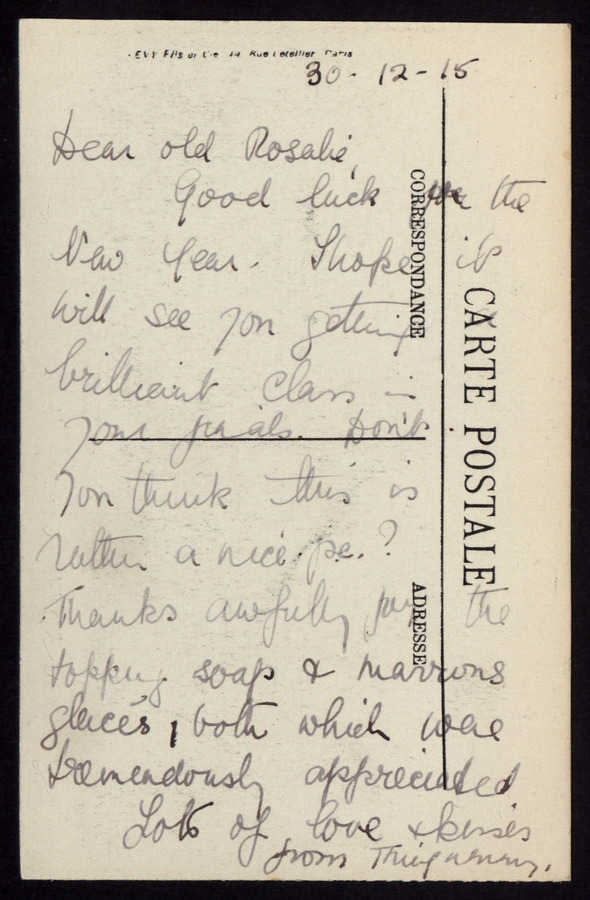 EVY Fils et Cie 14 Rue Letellier Paris
30-12-15
Dear old Rosalie,
Good luck for the
New Year. I hope it
will see you getting
brilliant class in
your finals. Don't
you think this is
rather a nice p.c.?
Thanks awfully for the
topping soap & marrons
glacés, both which were
tremendously appreciated
Lots of love & kisses
from
CORRESPONDANCE
ADRESSE
CARTE POSTALE